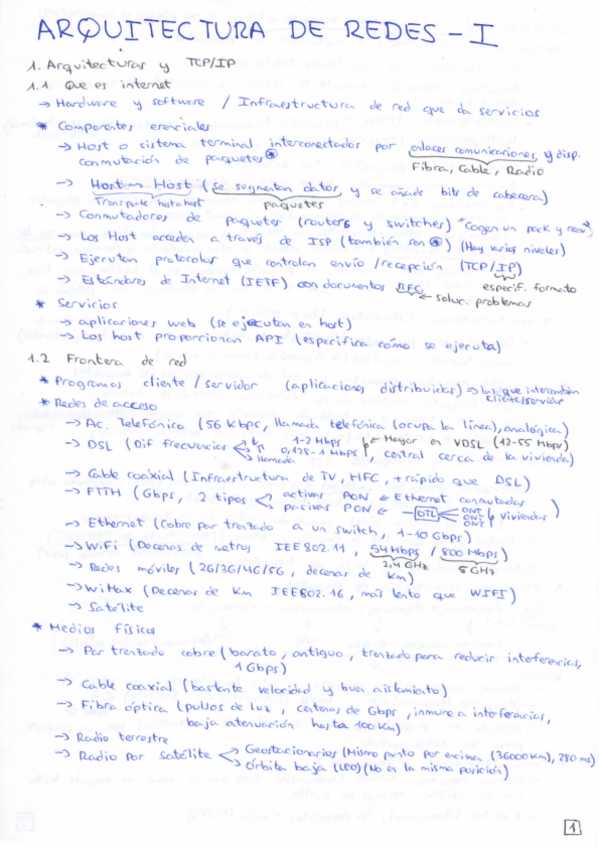 ARQUITECTURA DE REDES - I
1. Arquitecturas y TCP/IP
1.1 Que es internet
→ Hardware y software / Infraestructura de red que da servicios
* Componentes esenciales
→ Host o sistema terminal interconectados por enlaces comunicaciones, y disp.
conmutación de paquetes *
Fibra, Cable, Radio
→ Host → Host (se segmentan datos, y se añade bits de cabecera)
Transporte host a host paquetes
→ Conmutadores de paquetes (routers y switches) *Cogen un pack y
→ Los Host acceden a través de ISP (también son *) (Hay varios niveles)
→ Ejecutan protocolos que controlan envío / recepción (TCP/IP)
especif. formato
→ Estándares de Internet (IETF) con documentos RFC
← soluc. problemas
* Servicios
→ aplicaciones web (se ejecutan en host)
→ Los host proporcionan API (especifica cómo se ejecuta)
1.2 Frontera de red
* Programas cliente / servidor (aplicaciones distribuidas) → las que intercambian
cliente/servidor
* Redes de acceso
→ Ac. Telefónico (56 Kbps, llamada telefónica (ocupa la línea), analógica)
→ DSL (Dif frecuencias 1-2 Mbps ← Mayor en VDSL (12-55 Mbps)
0,128-1 Mbps, central cerca de la vivienda)
llamada
→ Cable coaxial (Infraestructura de TV, HFC, + rápido que DSL)
→ FTTH (Gbps, 2 tipos activas AON ← Ethernet conmutadas
pasivas PON ← OTL ONT ONT ONT viviendas)
→ Ethernet (Cobre par trenzado a un switch, 1-10 Gbps)
→ WiFi (Decenas de metros IEE802.11, 54 Mbps / 800 Mbps)
2,4 GHz 5 GHz
→ Redes móviles (2G/3G/4G/5G, decenas de Km)
→ WiMax (Decenas de Km IEE802.16, más lento que WIFI)
→ Satélite
* Medios físicos
→ Par trenzado cobre (barato, antiguo, trenzado para reducir interferencias,
1 Gbps)
→ Cable coaxial (bastante velocidad y buen aislamiento)
→ Fibra óptica (pulsos de luz, centenas de Gbps, inmune a interferencias,
baja atenuación hasta 100 Km)
→ Radio terrestre
→ Radio por satélite Geostacionarios (Mismo punto por encima (36000 Km), 280 ms)
Órbita baja (LEO) (No en la misma posición)
1